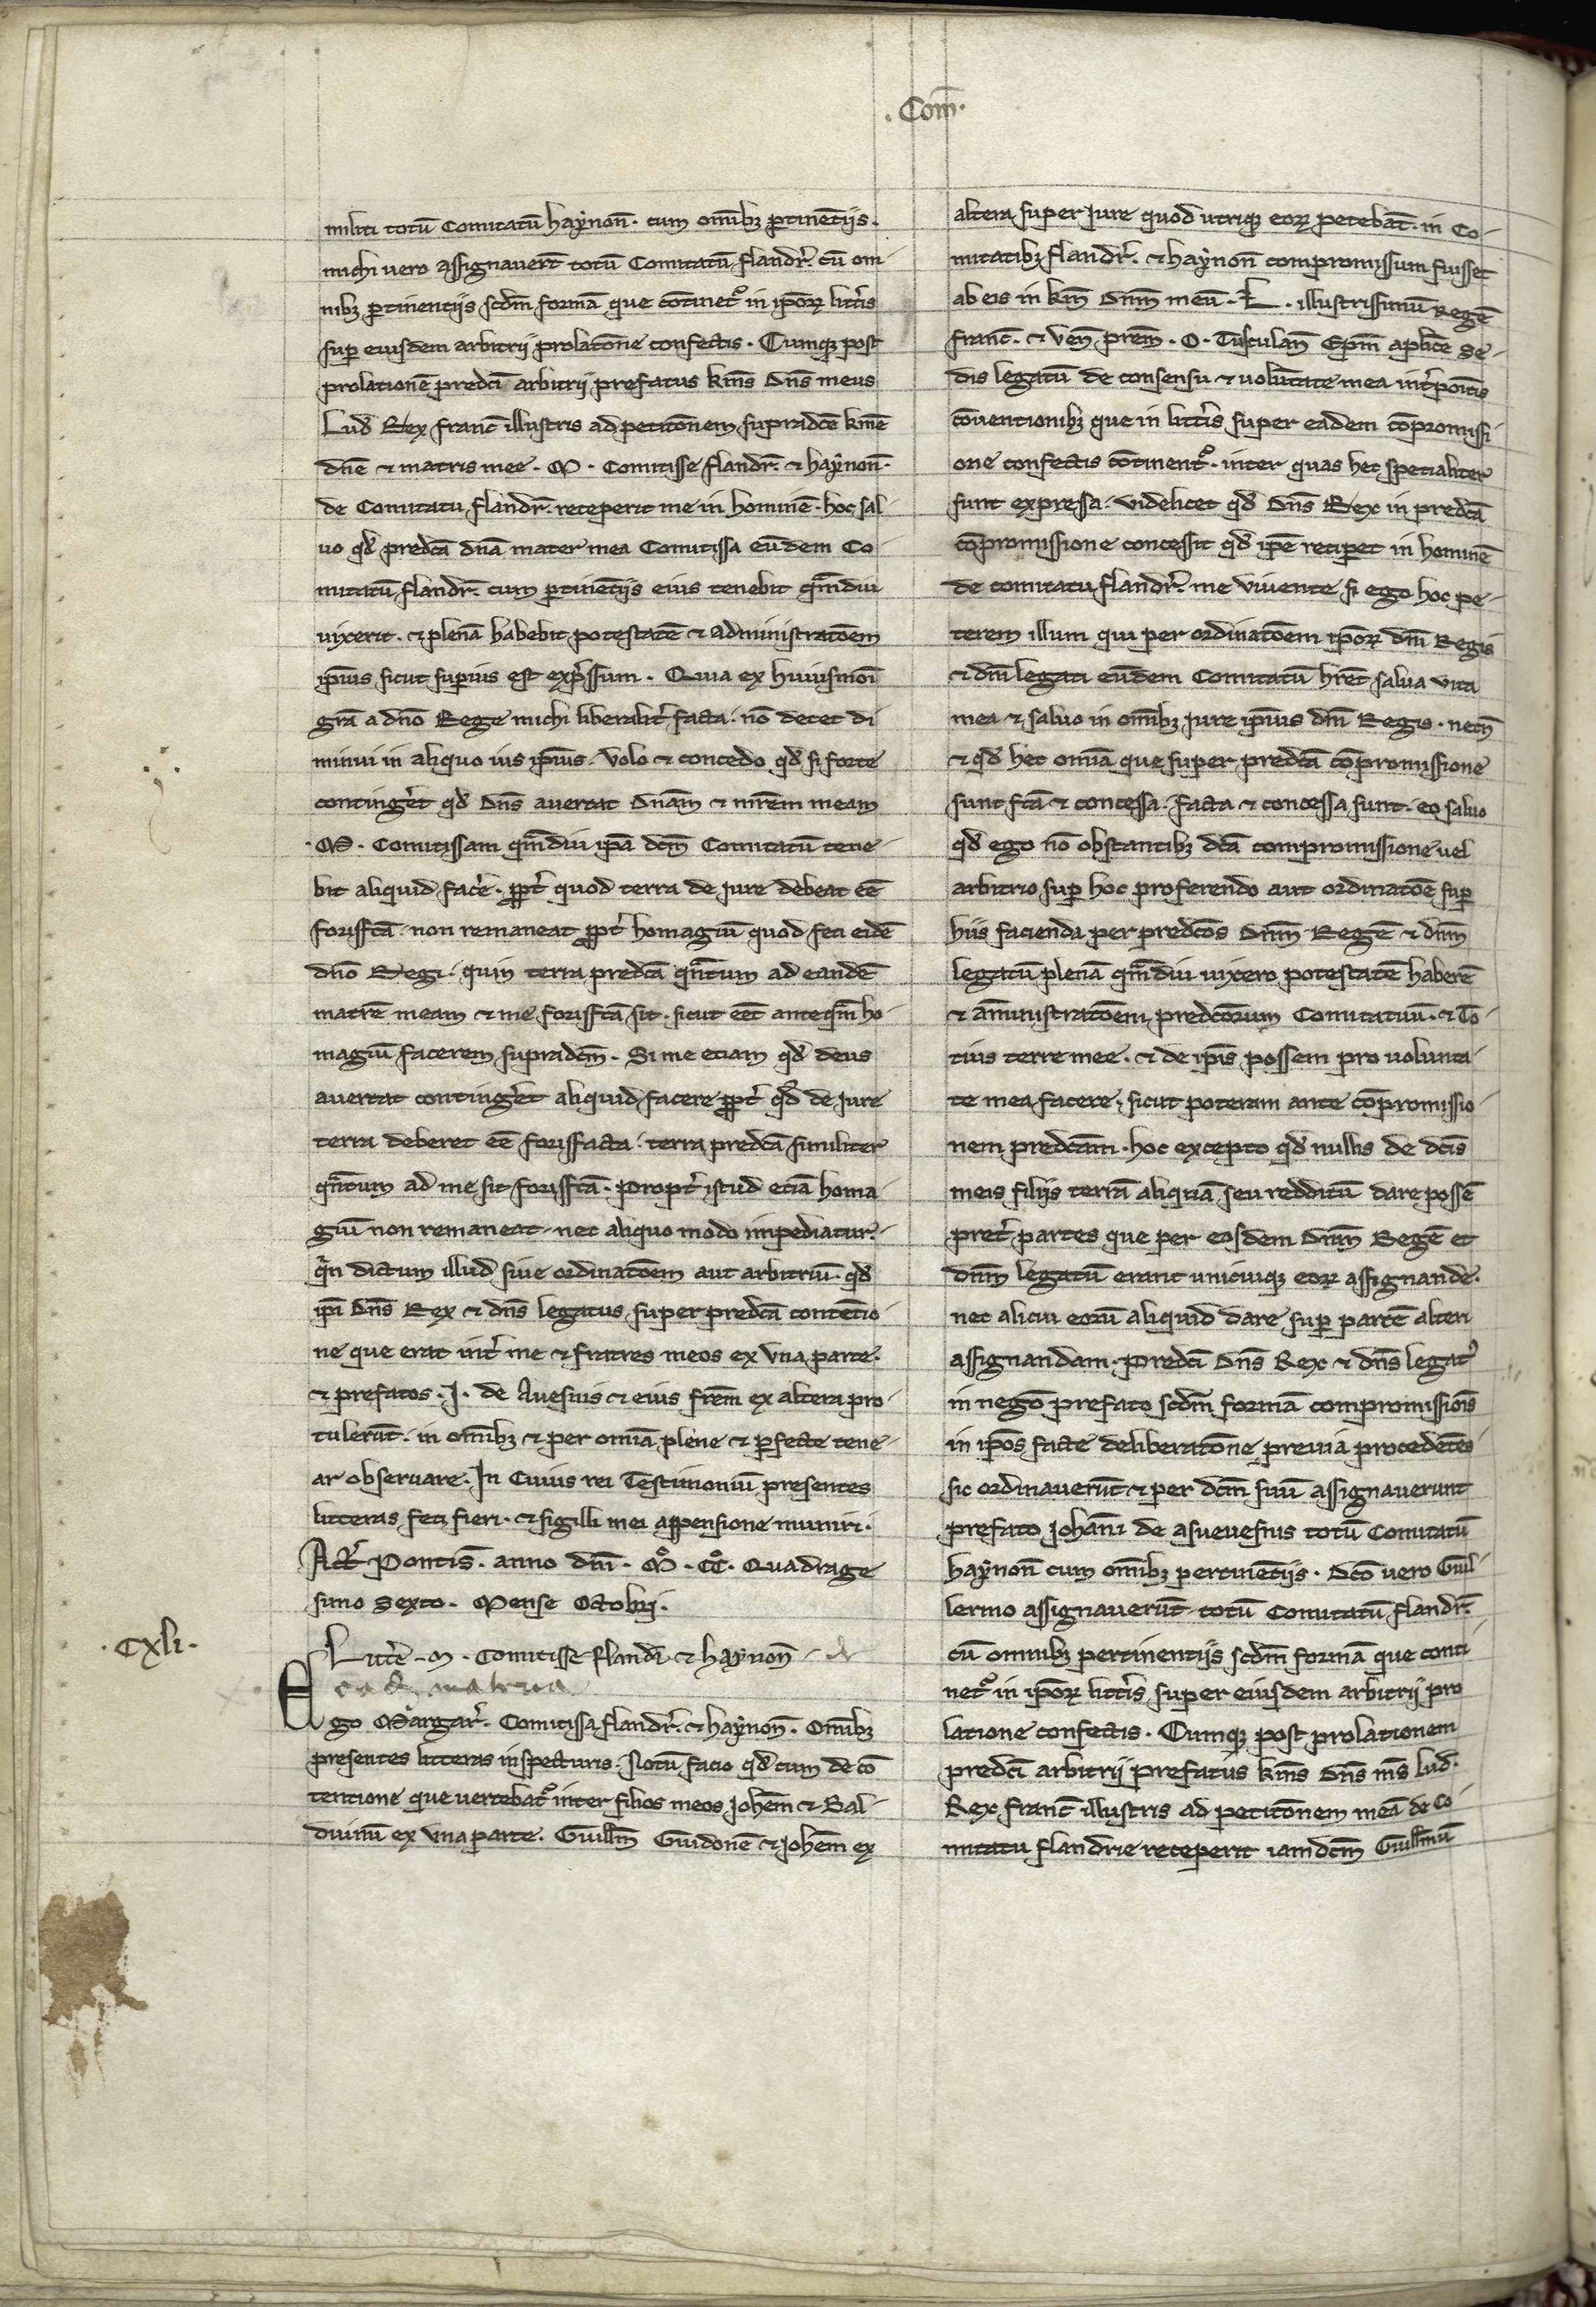 . Com̄.
militi totū Comitatū haẏnon̄. cum om̄ibꝫ ꝑtinētiis.
michi vero assignauer̄t totū Comitatū flandr̄. cū om
nibꝫ ꝑtinentiis scđm formā que ꝯtinet᷑ in ip̄oꝝ litt̄is
suꝑ eiusdem arbitrii prolatōne confectis. Cumqꝫ post
prolationē predc̄i arbitrii prefatus km̄s Dn̄s meus
Lud̄. Rex franc̄ illustris ad petitōnem supradc̄e km̄e
dn̄e ⁊ matris mee. M. Comitisse flandr̄. ⁊ haẏnon̄.
de Comitatu flandr̄. receperit me in hominē. hoc sal-
uo qđ predc̄a dn̄a mater mea Comitissa eūdem Co-
mitatū flandr̄. cum ꝑtinētiis eius tenebit qm̄diu
uixerit. ⁊ plenā habebit potestatē ⁊ administratōem
ip̄ius sicut suꝑius est exp̄ssum. Quia ex huiusmōi
grā a dn̄o Rege michi liberalit̄ facta. nō decet di
minui in aliquo ius ip̄ius. Volo ⁊ concedo qđ si forte
continḡet qđ Dn̄s auertat Dn̄am ⁊ mr̄em meam
.M. Comitissam qm̄diu ip̄a dc̄m Comitatū tene-
bit aliquid fac̄e. ꝓpt̄ quod terra de Jure debeat eē
forisfc̄ā. non remaneat ꝓpt̄ homagiū quod feci eidē
dn̄o Regi. quin terra predc̄a qn̄tum ad eandē
matrē meam ⁊ me forisfc̄ā sit. sicut eēt anteqm̄ ho-
magiū facerem supradc̄m. Si me etiam qđ deus
auertat continḡet aliquid facere ꝓpt̄ qđ de Jure
terra deberet eē forisfacta. terra predc̄a similiter
qn̄tum ad me sit forisfc̄ā. Propt̄ istud etiā homa-
giū non remaneat. nec aliquo modo impediatur.
qⁱn dictum illud siue ordinatōem aut arbitriū. qđ
ip̄i Dn̄s Rex ⁊ dn̄s legatus super predc̄a contētio-
ne que erat int̄ me ⁊ fratres meos ex vna parte.
⁊ prefatos. J. de Auesnis ⁊ eius fr̄em ex altera pro-
tulerūt. in om̄ibꝫ ⁊ per omīa plene ⁊ ꝑfecte tene-
ar obseruare. In Cuius rei Testimoniū presentes
litteras feci fieri. ⁊ sigilli mei appensione muniri.
Act̄. Pontis̄. anno dn̄i. M̊. CC̊. Quadrage
simo sexto. Mense Octobri.
.Cxli.
Litt̄e. M. Comitisse flandr̄ ⁊ haẏnon̄ - de
eadē materia
Ego Margar̄. Comitissa flandr̄. ⁊ haẏnon̄. Om̄ibꝫ
presentes litteras inspecturis. Notū facio qđ cum de cō
tentione que vertebat᷑ inter filios meos Joh̄em ⁊ Bal-
duinū ex vna parte. Guillm̄ Guidonē ⁊ Joh̄em ex
altera super Jure quod utriqꝫ eoꝝ petebāt. in Co-
mitatibꝫ flandr̄. ⁊ haẏnon̄ compromissum fuisset
ab eis in km̄ Dn̄m meū. L. illustrissimū Regē
franc̄. ⁊ ven̄ pr̄em. O. Tusculan̄ Ep̄m ap̄lice Se-
dis legatū de consensu ⁊ uolūtate mea int̄poitis
ꝯuentionibꝫ que in litt̄is super eadem ꝯpromissi
one confectis ꝯtinent᷑. inter quas hec specialiter
sunt expressa. Videlicet qđ Dn̄s Rex in predc̄a
ꝯpromissione concessit qđ ip̄e reciꝑet in hominē
de comitatu flandr̄. me viuente si ego hoc pe-
terem illum qui per ordinatōem ip̄oꝝ dn̄i Regis
⁊ dn̄i legati eūdem Comitatū hr̄et salua vita
mea ⁊ saluo in om̄ibꝫ Jure ip̄ius dn̄i Regis. necn̄
⁊ qđ hec omīa que super predc̄a ꝯpromissione
sunt fc̄a ⁊ concessa. facta ⁊ concessa sunt. eo saluo
qđ ego nō obstantibꝫ dc̄a compromissione uel
arbitrio suꝑ hoc proferendo aut ordinatōe suꝑ
hiis facienda per predc̄os Dn̄m Regē ⁊ dn̄m
legatū plenā qm̄diu uixero potestatē haberē
⁊ am̄inistratōem predc̄orum Comitatuū. ⁊ To-
tius terre mee. ⁊ de ip̄is possem pro volunta-
te mea facere, sicut poteram ante ꝯpromissio-
nem predc̄am. hoc excepto qđ nullis de dc̄is
meis filiis terrā aliquā seu redditū dare possē
pret̄ partes que per eosdem Dn̄m Regē et
dn̄m legatū erant unicuiqꝫ eoꝝ assignande.
nec alicui eorū aliquid dare suꝑ partē alteri
assignandam. Predc̄i Dn̄s Rex ⁊ dn̄s legat᷒
in negō prefato scđm formā compromissiōis
in ip̄os facte deliberatōne preuia procedētes
sic ordinauerūt ⁊ per dc̄m suū assignauerunt
prefato Johāni de asuesnis totū Comitatū
haẏnon̄ cum om̄ibꝫ pertinētiis. Dc̄o vero Guil-
lermo assignauerūt totū Comitatū flandr̄.
cū omnibꝫ pertinentiis scđm formā que conti
net᷑ in ip̄oꝝ litt̄is super eiusdem arbitrii pro
latione confectis. Cumqꝫ post prolationem
predc̄i arbitrii prefatus km̄s Dn̄s m̄s lud̄.
Rex franc̄ illustris ad petitōnem meā de Co-
mitatu flandrie receperit iamdc̄m Guillmū